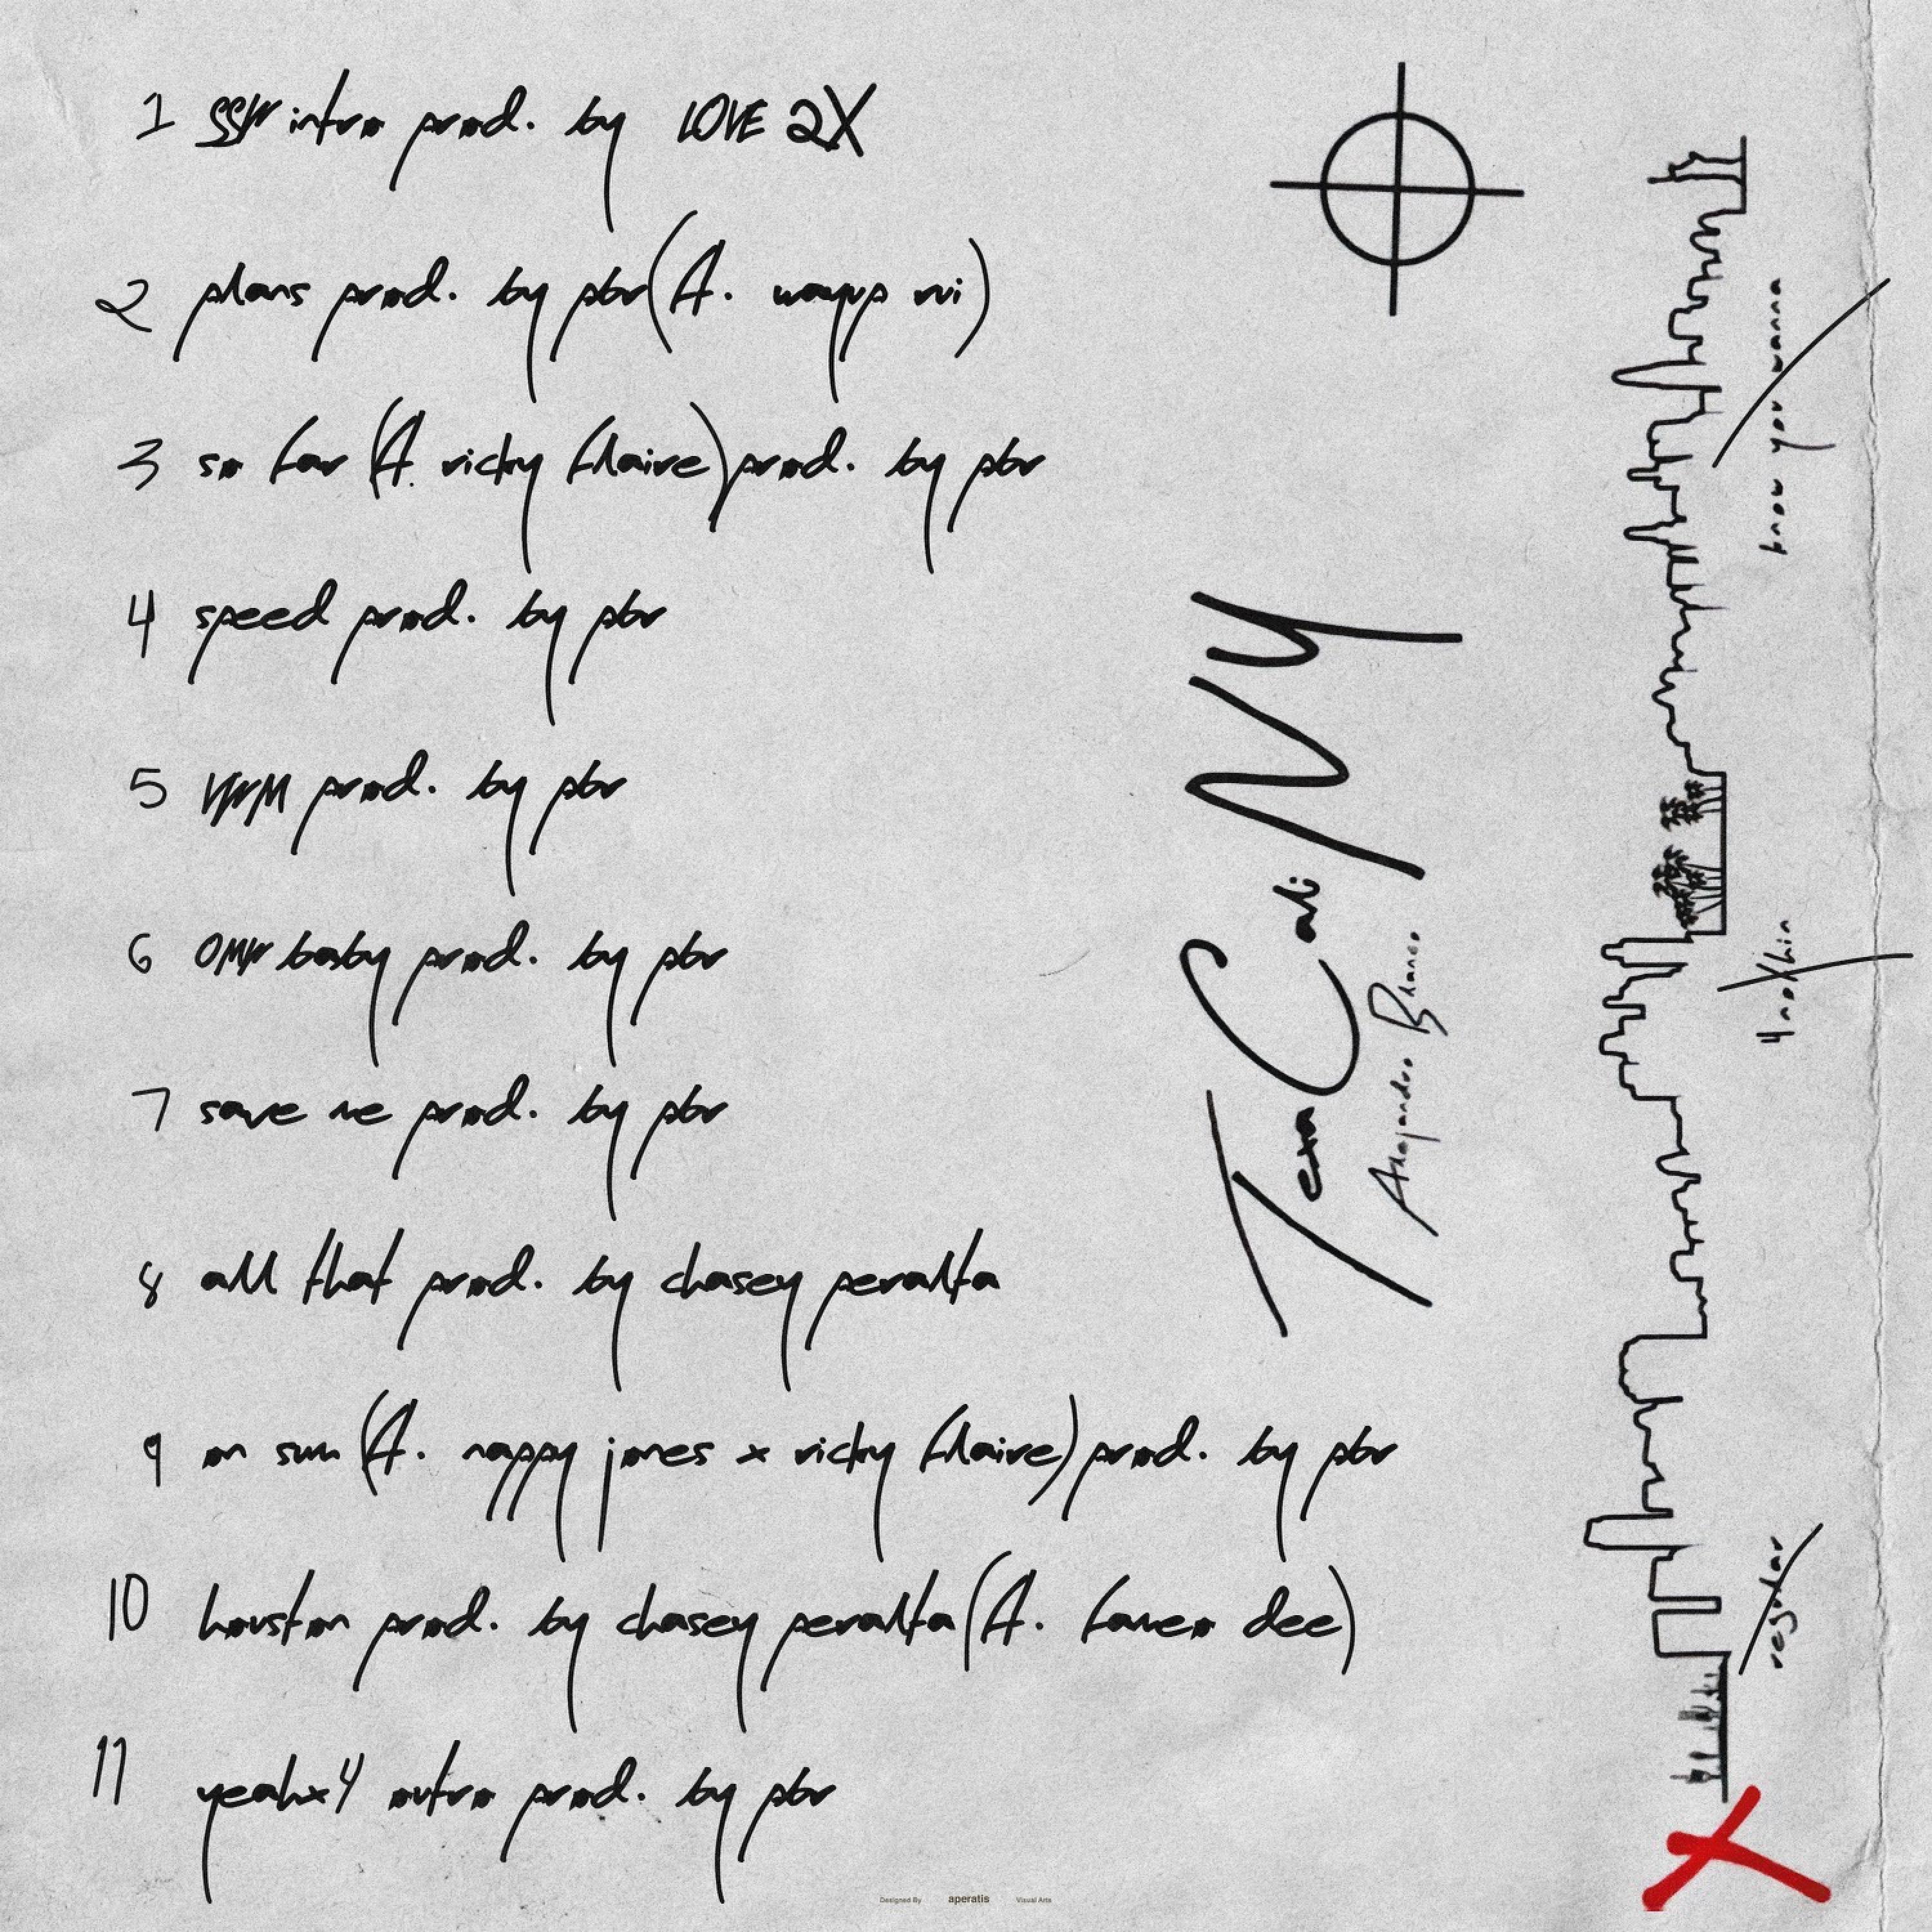 1 SSW intro prod. by LOVE 2X
2 plans prod. by pbr (ft. wayup vvi)
3 so far (ft. ricky flaire) prod. by pbr
4 speed prod. by pbr
5 prod. by pbr
6 OMW baby prod. by pbr
7 save me prod. by pbr
8 all that prod. by chasey peralta
9 on sum (ft. nappy jones x ricky flaire) prod. by pbr
10 houston prod. by chasey peralta (ft. dee)
11 yeahx4 outro prod. by pbr
TexaCaliNY
Alejandro Blanco
know you wanna
4nothin
regular
Designed By aperatis Visual Arts